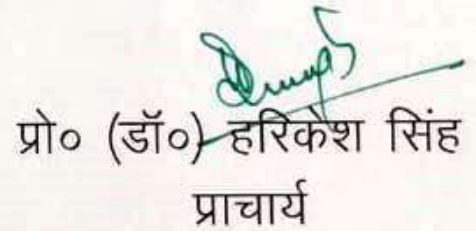 प्रो० (डॉ०) हरिकेश सिंह
प्राचार्य